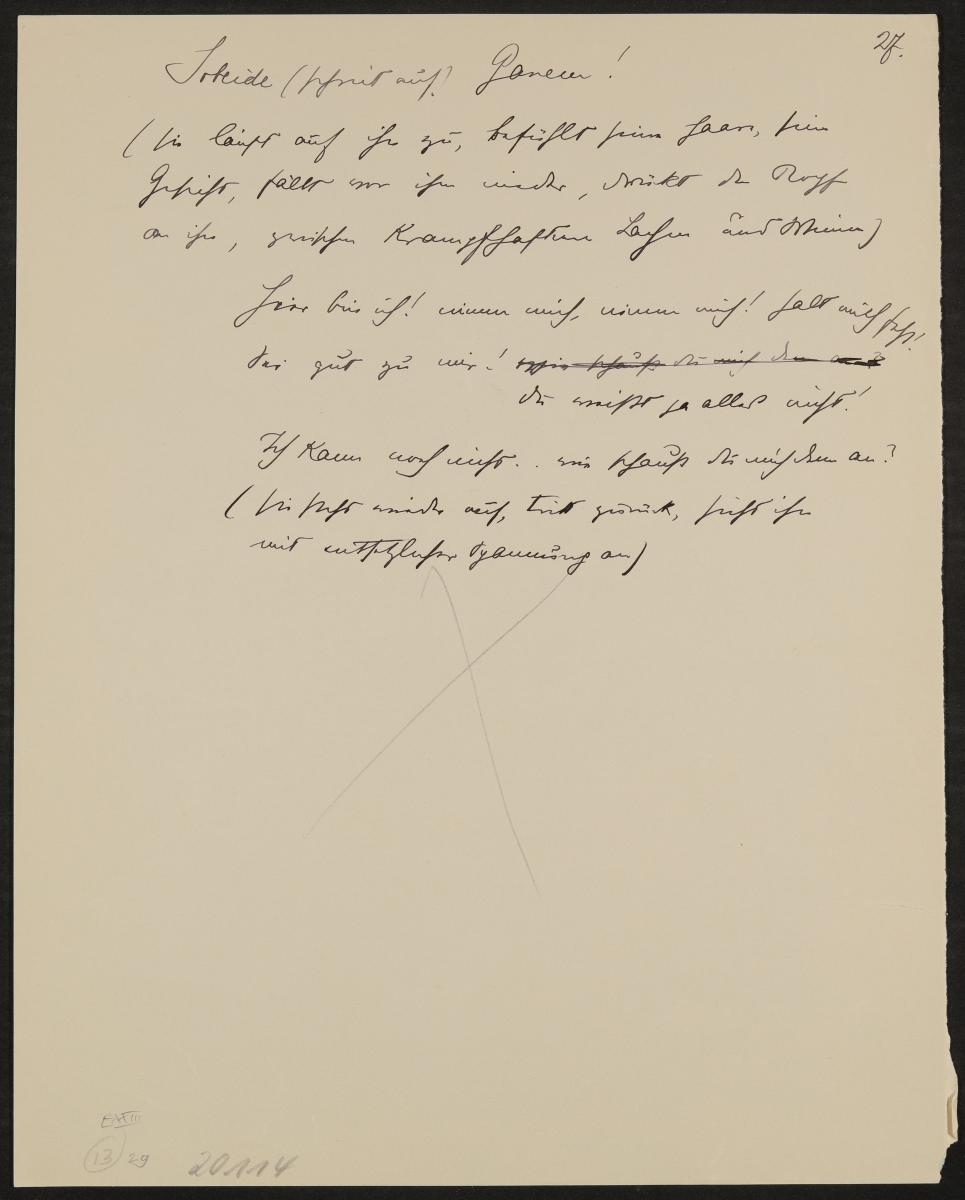 27.
Sobeide (schreit auf) Ganem!
(sie läuft auf ihn zu, befühlt seine Haare, sein
Gesicht, fällt vor ihm nieder, drückt den Kopf
an ihn, zwischen krampfhaftem Lachen und Weinen)
Hier bin ich! nimm mich, nimm mich! halt mich fest!
Sei gut zu mir! wie schaust du mich denn an?
du weißt ja alles nicht!
Ich kann noch nicht.. wie schaust du mich denn an?
(sie steht wieder auf, tritt zurück, sieht ihn
mit entsetzlicher Spannung an)
E XIII
13 29 20114